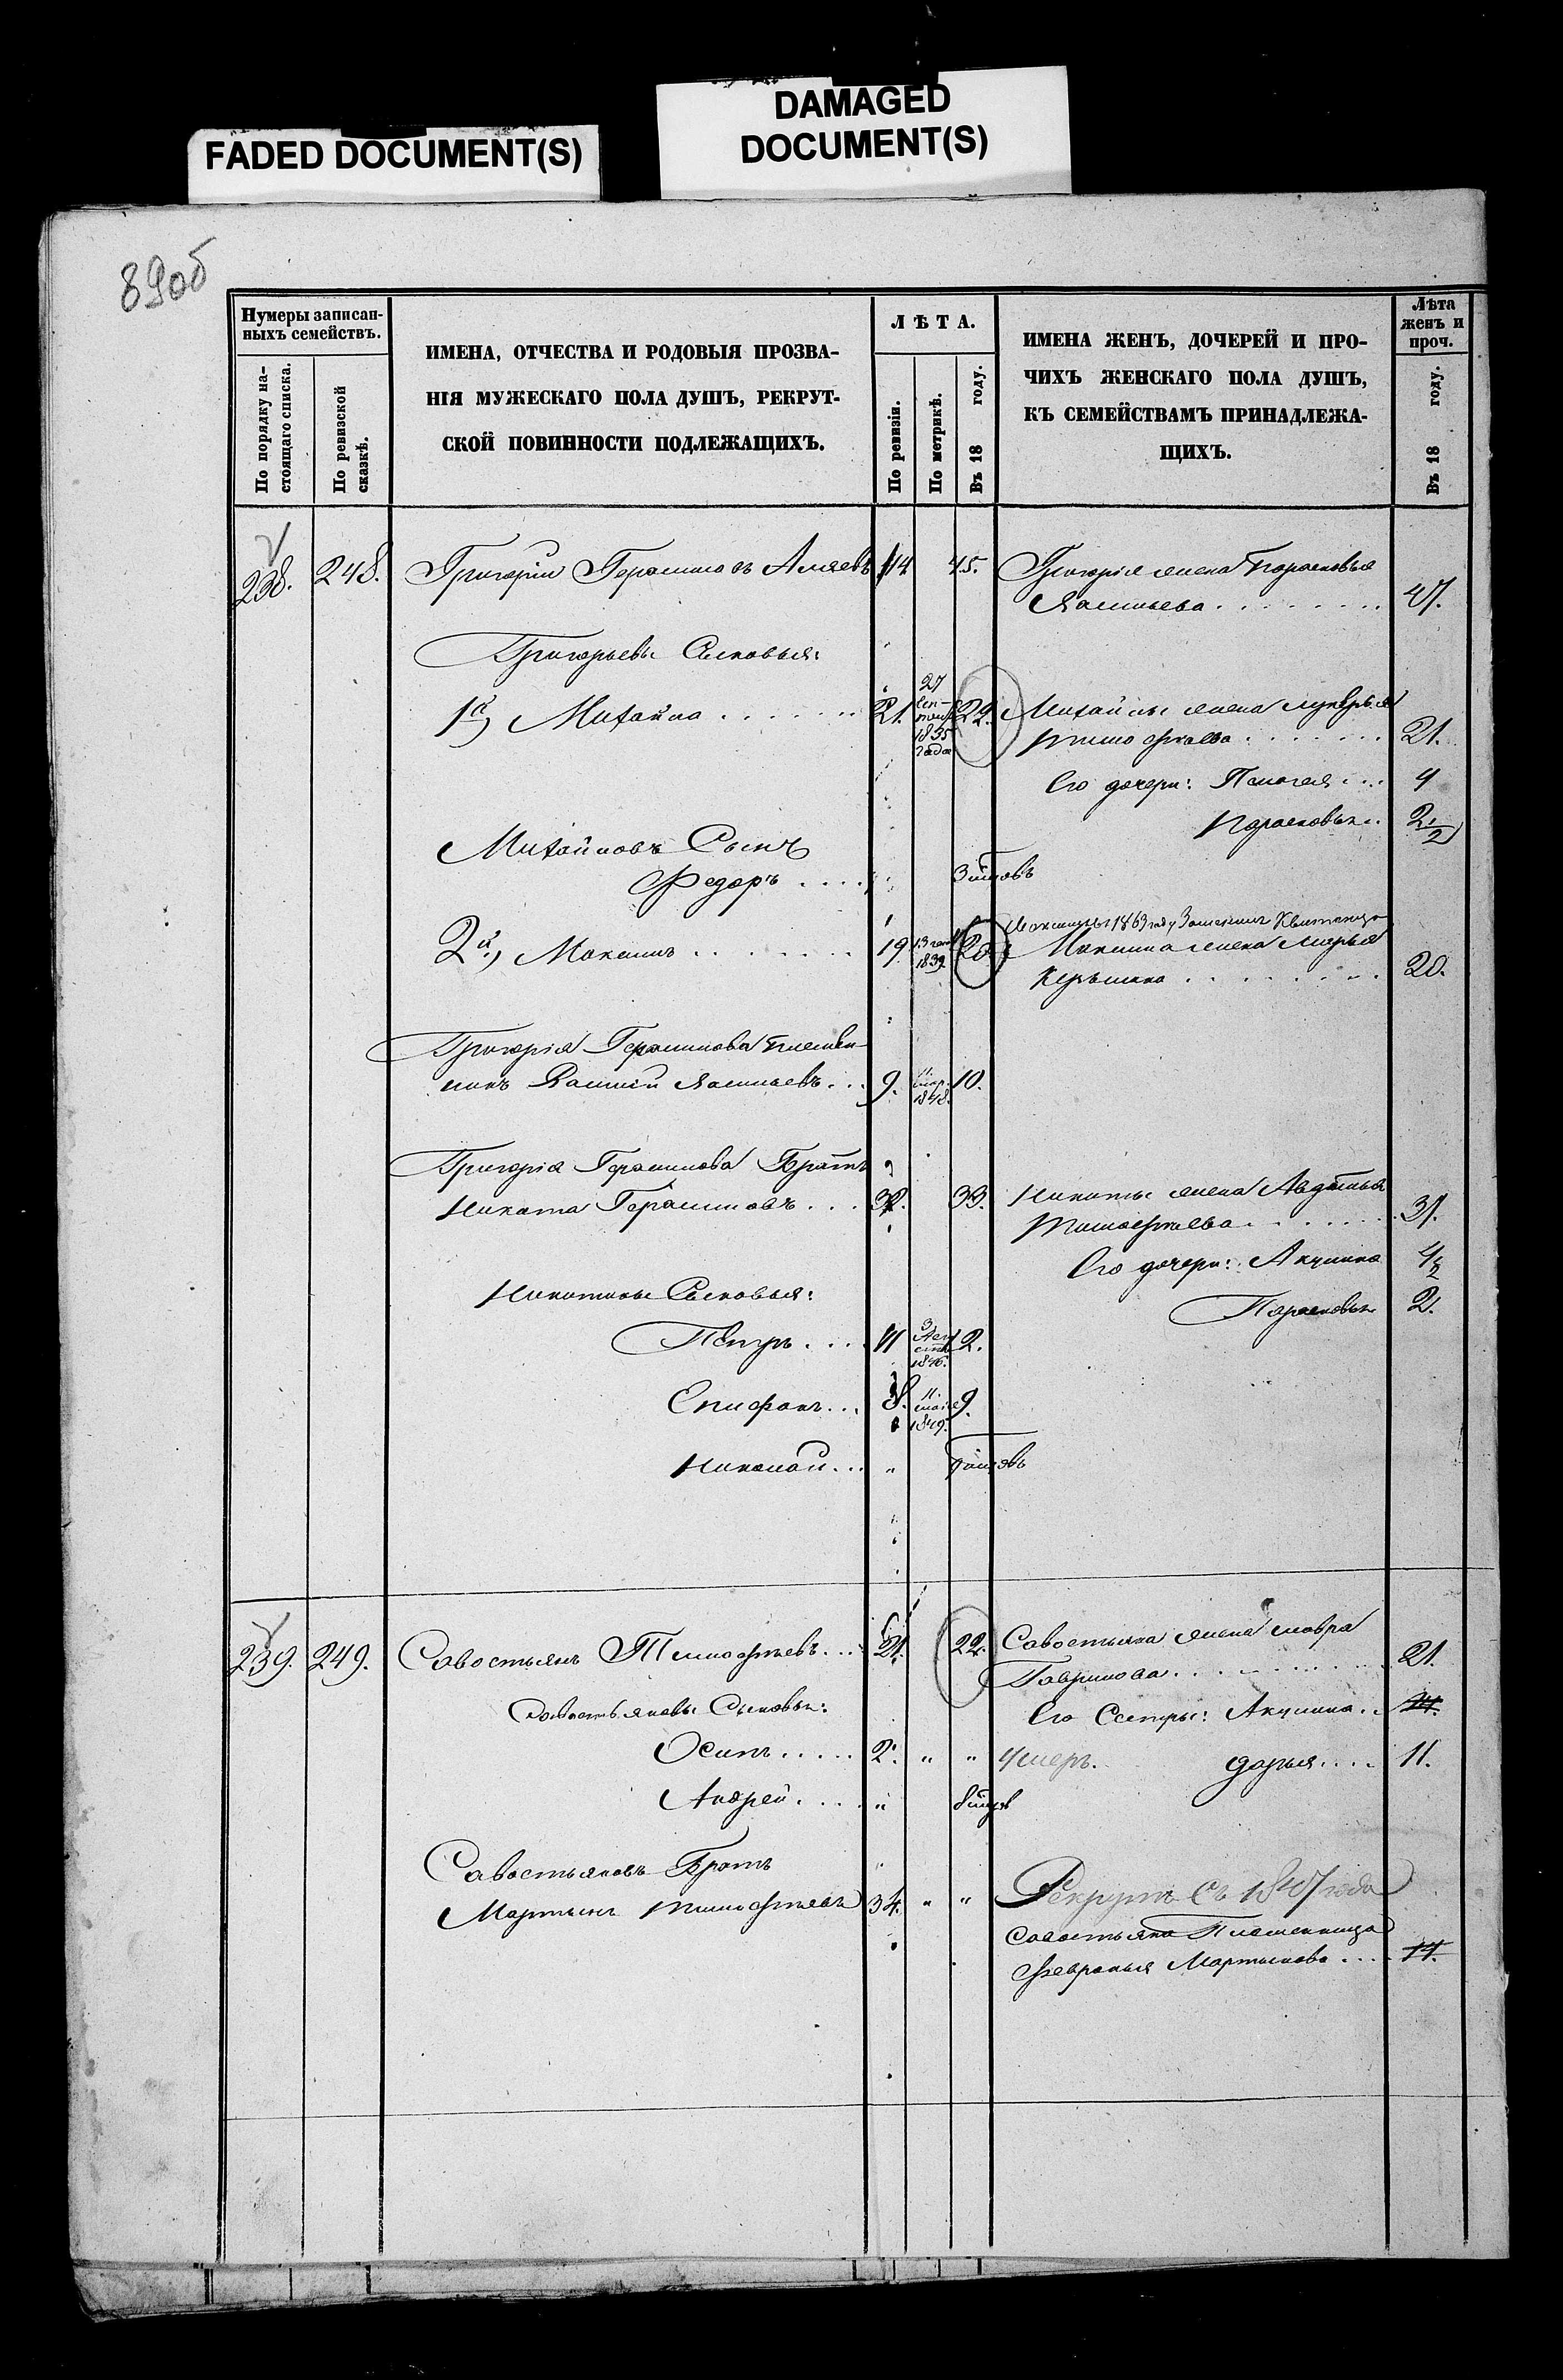 FADED DOCUMENT(S)
DAMAGED
DOCUMENT(S)
89об
Нумеры записан-
ныхъ семействъ.
По порядку на-
стоящаго списка.
По ревизской
сказкѣ.
ИМЕНА, ОТЧЕСТВА И РОДОВЫЯ ПРОЗВА-
НІЯ МУЖЕСКАГО ПОЛА ДУШЪ, РЕКРУТ-
СКОЙ ПОВИННОСТИ ПОДЛЕЖАЩИХЪ.
Л Ѣ Т А.
По ревизіи.
По метрикѣ.
Въ 18 году.
ИМЕНА ЖЕНЪ, ДОЧЕРЕЙ И ПРО-
ЧИХЪ ЖЕНСКАГО ПОЛА ДУШЪ,
КЪ СЕМЕЙСТВАМЪ ПРИНАДЛЕЖА-
ЩИХЪ.
Лѣта
женъ и
проч.
Въ 18 году.
238. 248. Григорій Герасимовъ 44 45. Григорія жена Парасковья
Васильева 47.
Григорьевы Сыновья:
1й) Михайла 21. 27 Сен- 1835 года 22. Михайлы жена Лукерья
Тимофеева 21.
Его дочери: Пелагея 4
Парасковья 2 1/2
Михайловъ Сынъ
Федоръ
2й) Максимъ 19. 1839 20. Максимъ 1863 году Квитанцію
Максима жена Марья
20.
Григорія Герасимова племян-
никъ Василій Васильевъ 9. 1848. 10.
Григорія Герасимова Братъ
Никита Герасимовъ 32. 33. Никиты жена Авдотья
Тимофеева 31.
Его дочери: Акулина
Никитины Сыновья:
Парасковья 2.
Петръ 11 3 Авг 1846. 12.
Епифанъ 8. 11. мая 1849. 9.
Николай "
239. 249. Савостьянъ Тимофеевъ 21. 22. Савостьяна жена Мавра
Гаврилова 21.
Савостьяновы Сыновья: Его Сестры: Акулина 14.
Осипъ 2. " " умеръ. Дарья 11.
Андрей "
Савостьяновъ Братъ
Мартынъ Тимофеевъ 34. " " Рекрутъ съ 1847 года
Савостьяна Племянница
Февронья Мартынова 11.